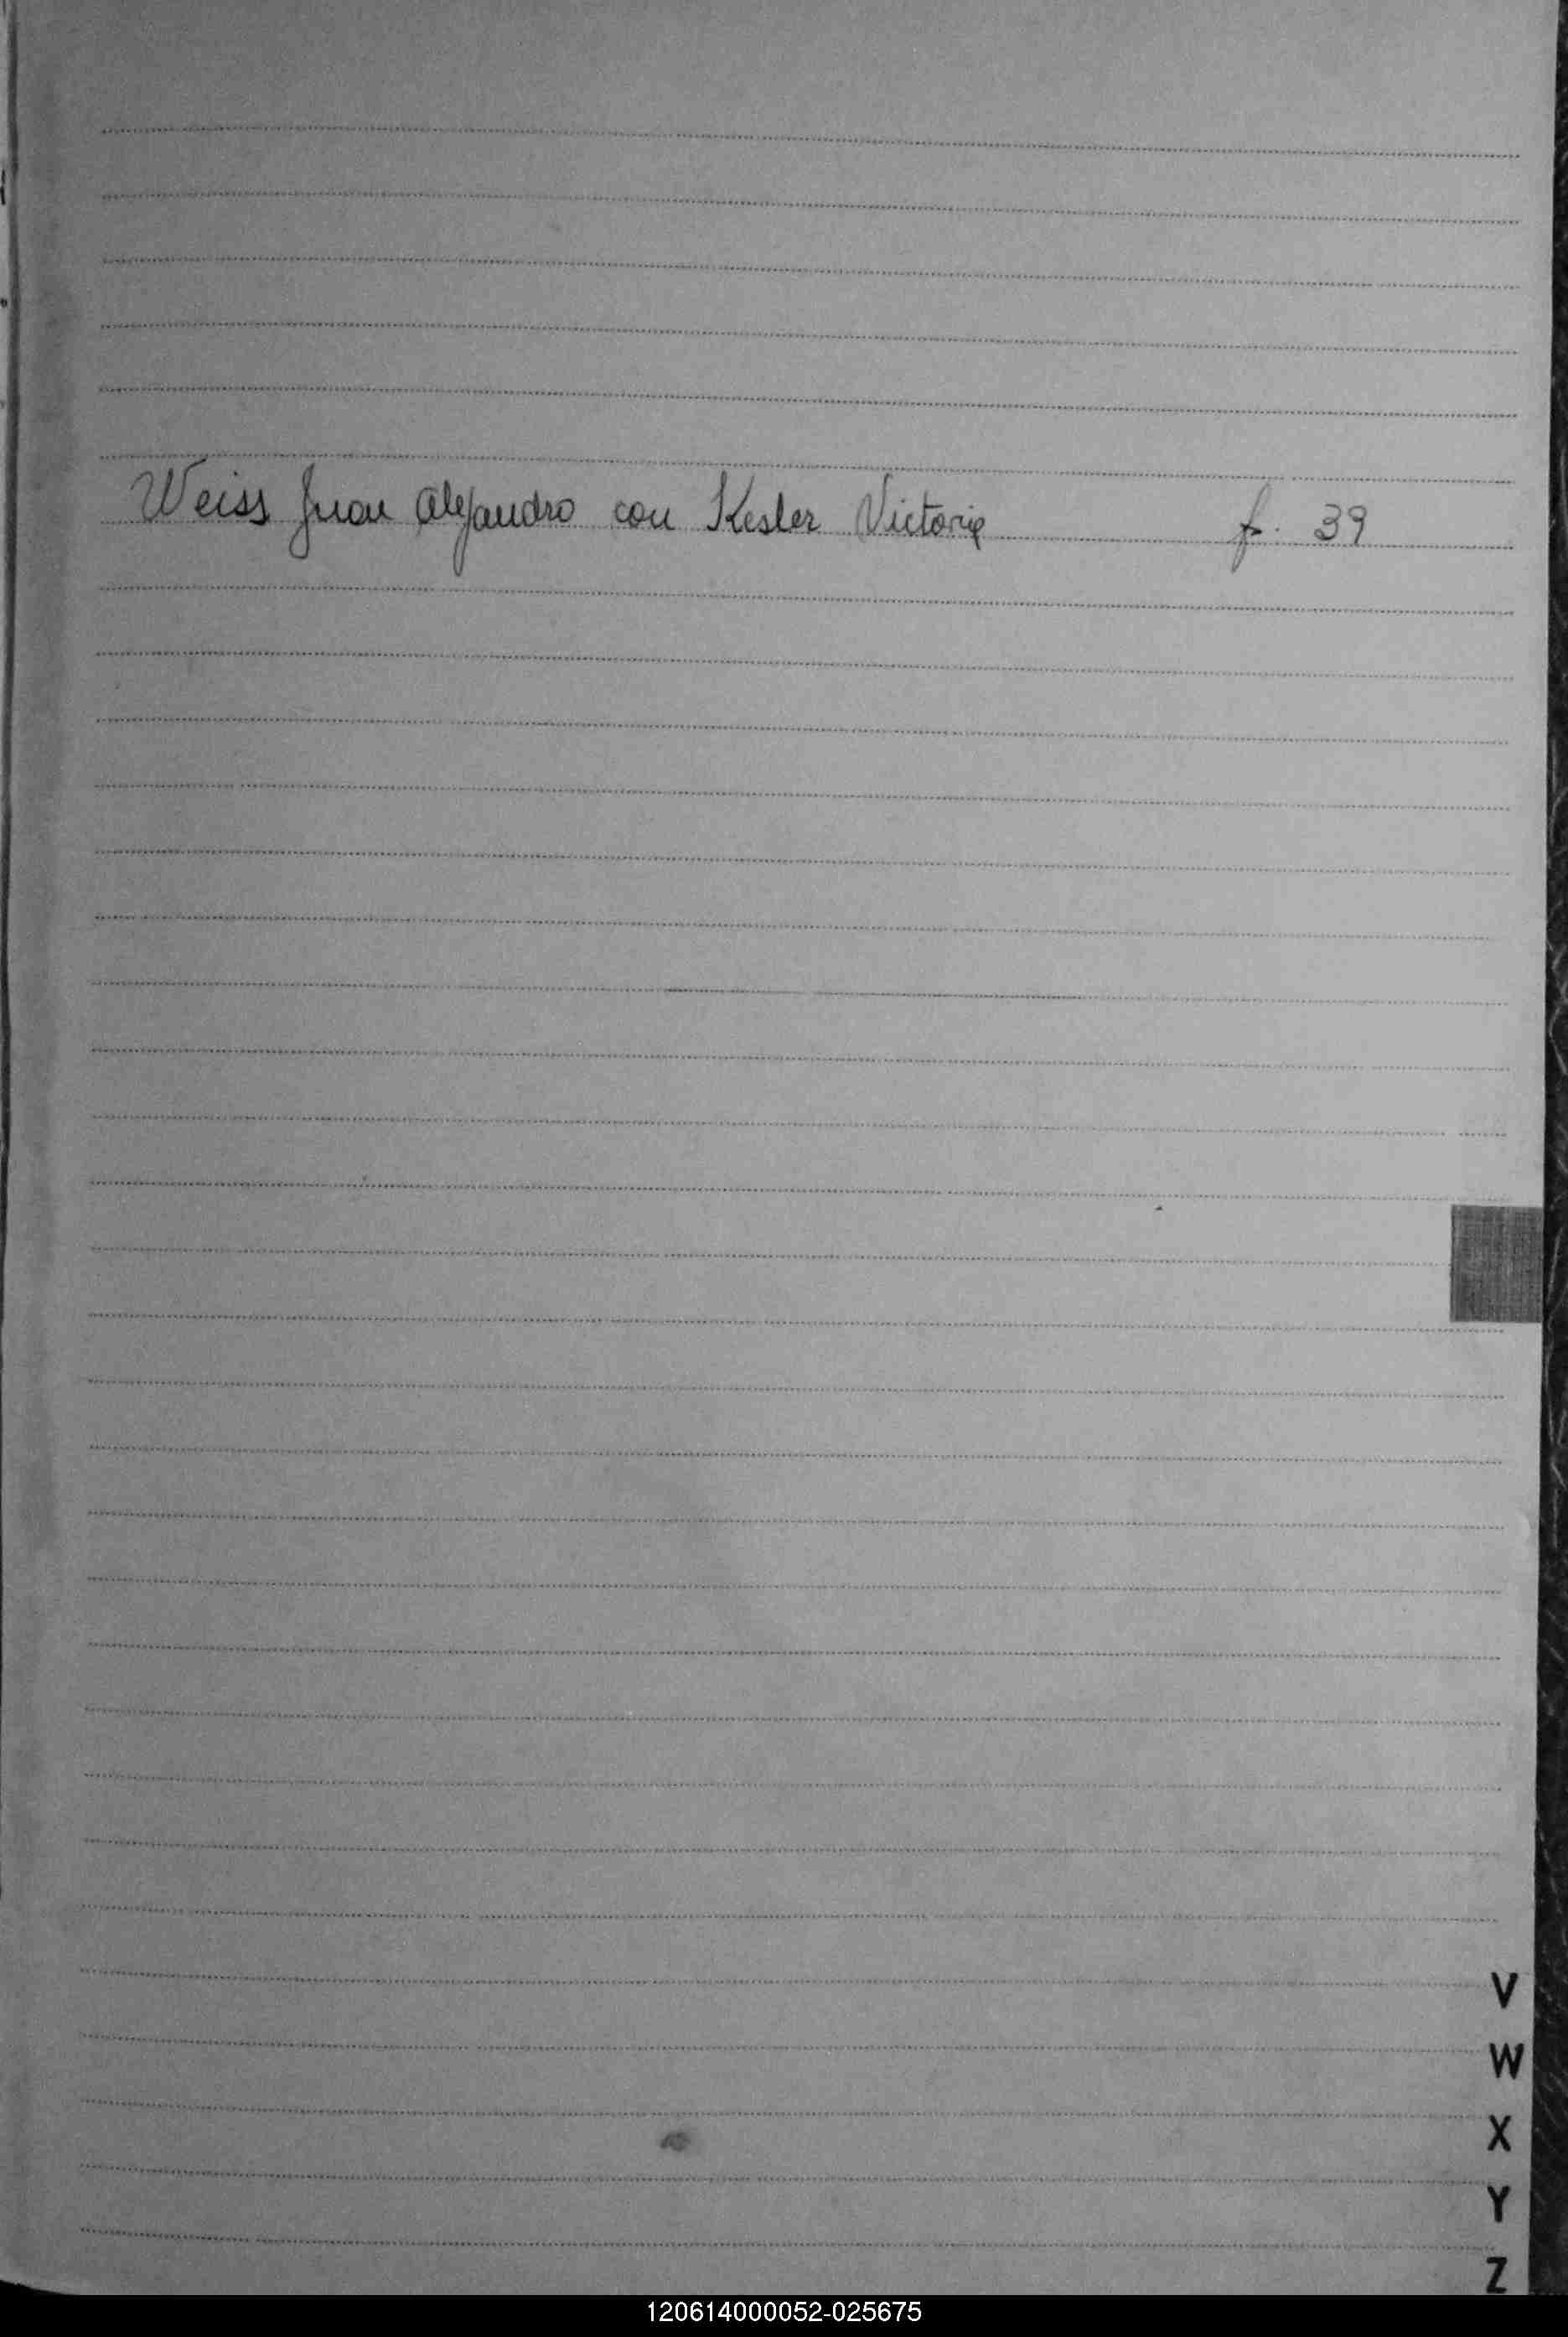 Weiss Juan Alejandro con Kesler Victoria f. 39
V
W
X
Y
Z
120614000052-025675